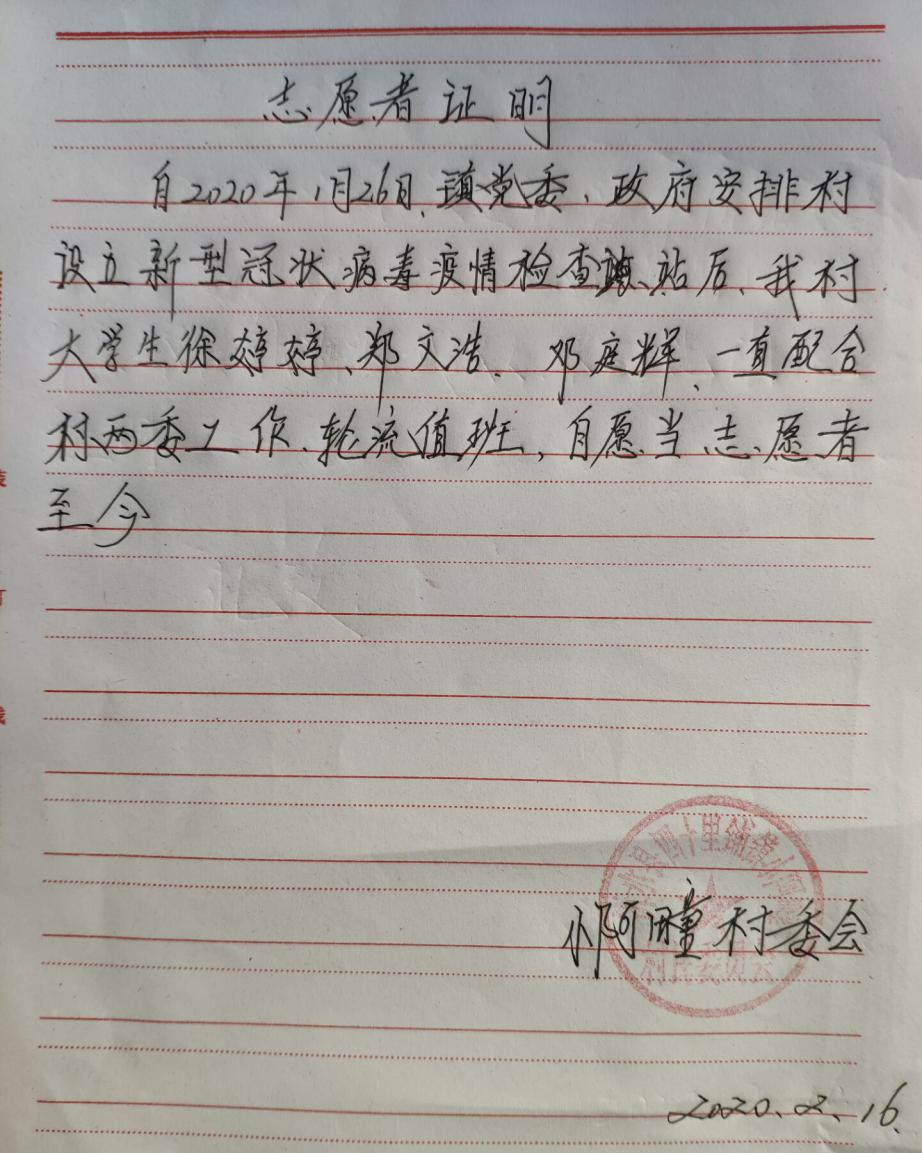 志愿者证明
自2020年1月26日、镇党委、政府安排村
设立新型冠状病毒疫情检查站后、我村
大学生徐婷婷、郑文浩、邓庭辉、一直配合
村两委工作、轮流值班,自愿当志愿者
至今
四十里铺镇小
小阿疃村委会
村民委员会
2020.2.16.